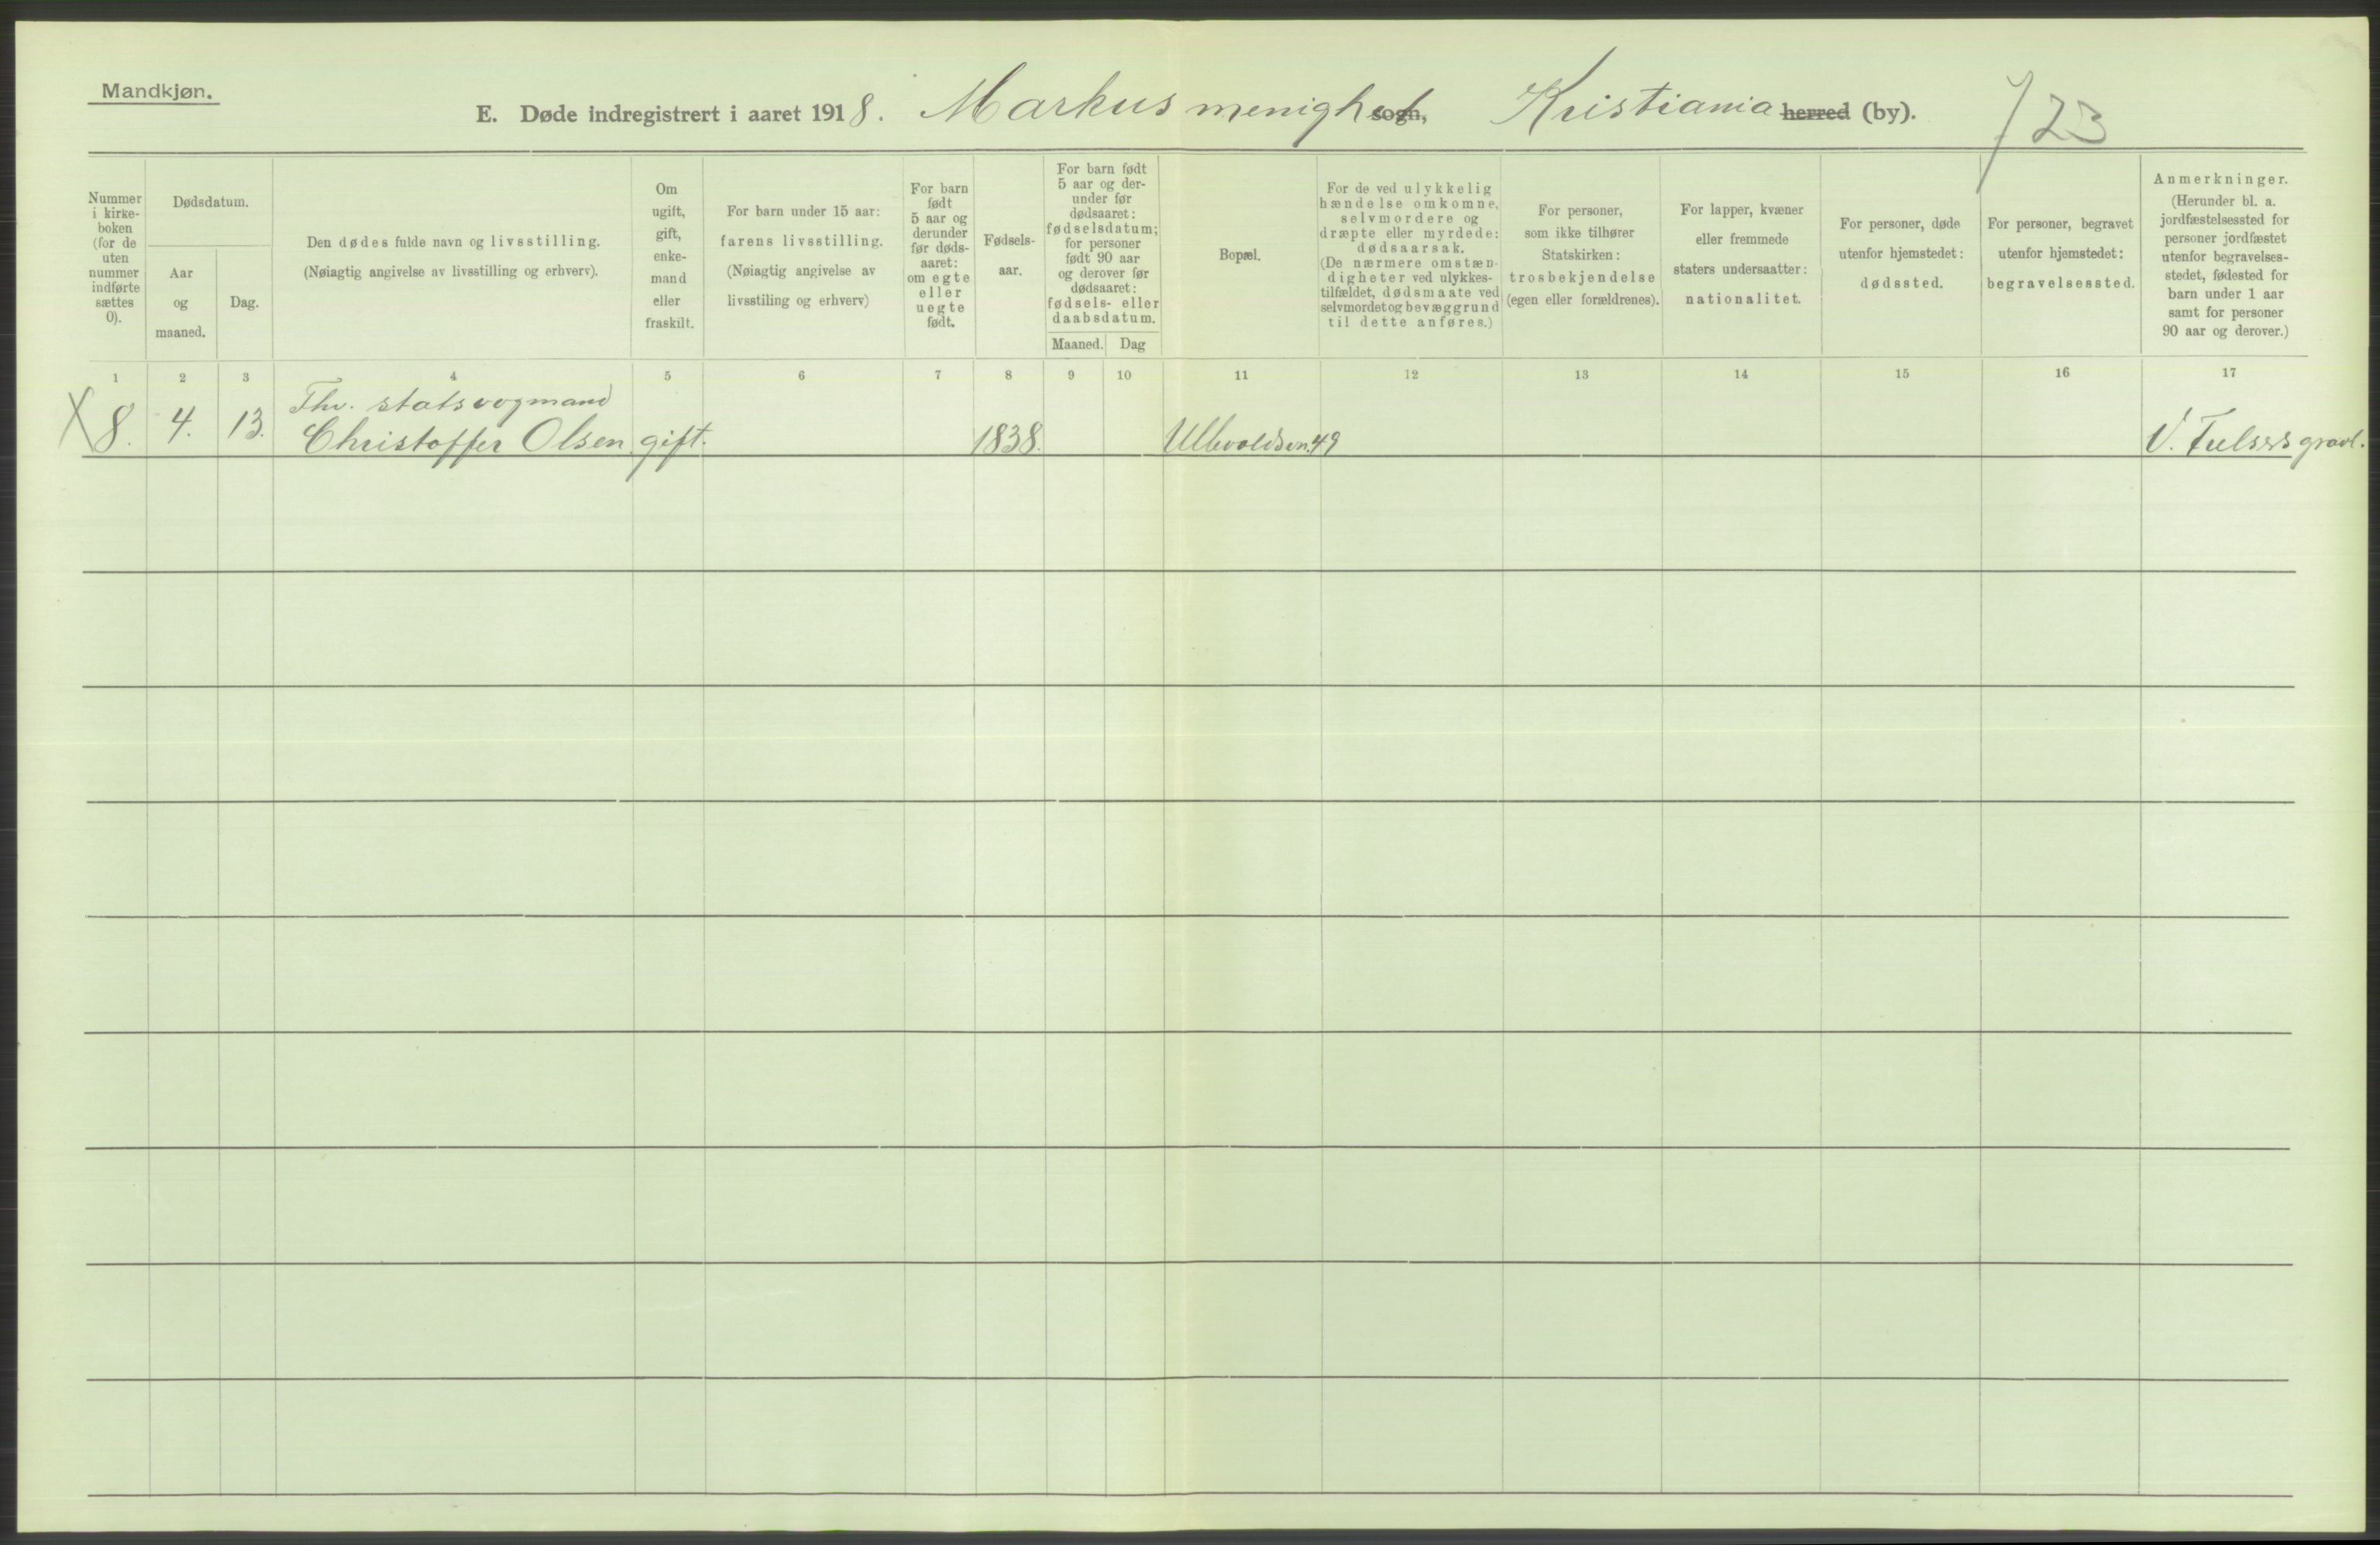 Mandkjøn.
E. Døde indregistrert i aaret 1918. Markus menighet sogn, Kristiania herred (by).
723
Nummer i kirke- boken (for de uten nummer indførte sættes 0).
Dødsdatum.
Aar og maaned.
Dag.
Den dødes fulde navn og livsstilling.
(Nøiagtig angivelse av livsstilling og erhverv).
Om ugift, gift, enke- mand eller fraskilt.
For barn under 15 aar: farens livsstilling.
(Nøiagtig angivelse av livsstiling og erhverv)
For barn født 5 aar og derunder før døds- aaret: om egte eller uegte født.
Fødsels- aar.
For barn født 5 aar og der- under før dødsaaret: fødselsdatum; for personer født 90 aar og derover før dødsaaret: fødsels- eller daabsdatum.
Maaned. Dag
Bopæl.
For de ved ulykkelig hændelse omkomne, selvmordere og dræpte eller myrdede: dødsaarsak.
(De nærmere omstæn- digheter ved ulykkes- tilfældet, dødsmaate ved selvmordet og bevæggrund til dette anføres.)
For personer, som ikke tilhører Statskirken: trosbekjendelse (egen eller forældrenes).
For lapper, kvæner eller fremmede staters undersaatter: nationalitet.
For personer, døde utenfor hjemstedet: dødssted.
For personer, begravet utenfor hjemstedet: begravelsessted.
Anmerkninger.
(Herunder bl. a. jordfæstelsessted for personer jordfæstet utenfor begravelses- stedet, fødested for barn under 1 aar samt for personer 90 aar og derover.)
1 2 3 4 5 6 7 8 9 10 11 12 13 14 15 16 17
Fhv.
X 8. 4. 13. Christoffer Olsen gift. 1838. 49 V. gravl.